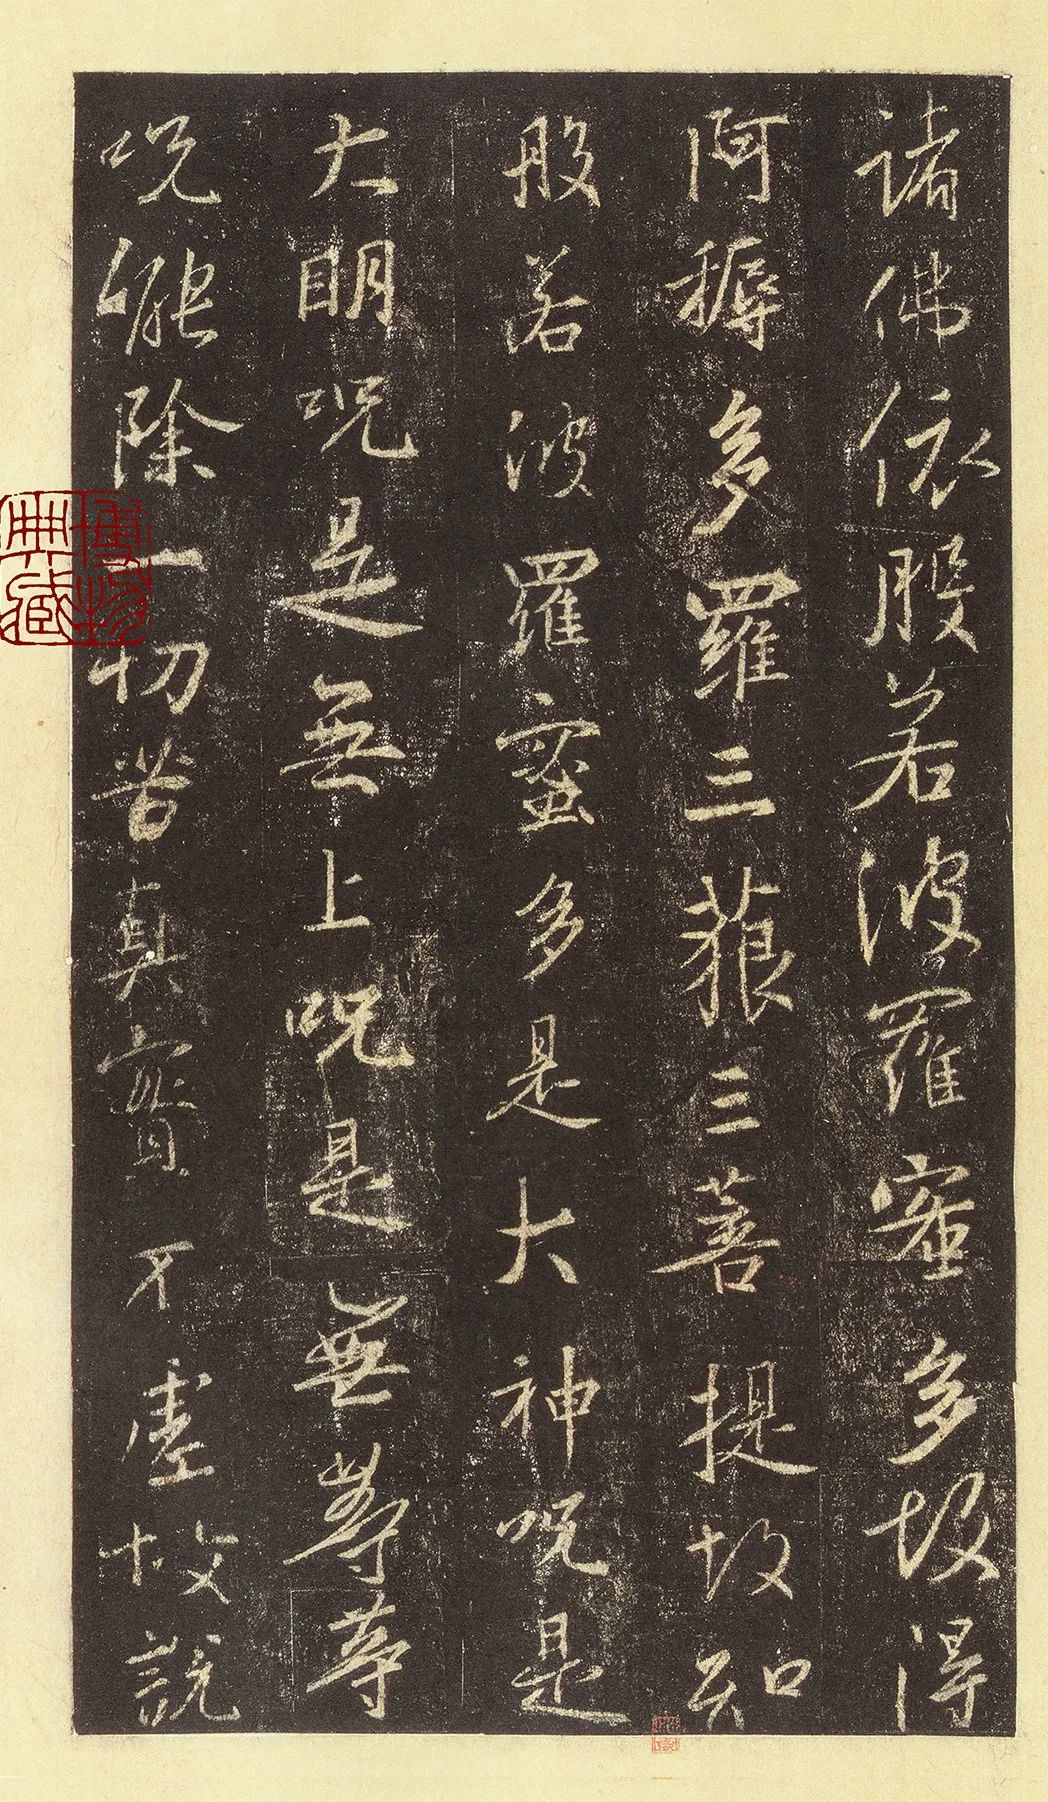 諸佛依般若波羅蜜多故得
阿耨多羅三藐三菩提故知
般若波羅蜜多是大神呪是
大明呪是無上呪是無等等
呪能除一切苦真實不虛故說
博物
典藏